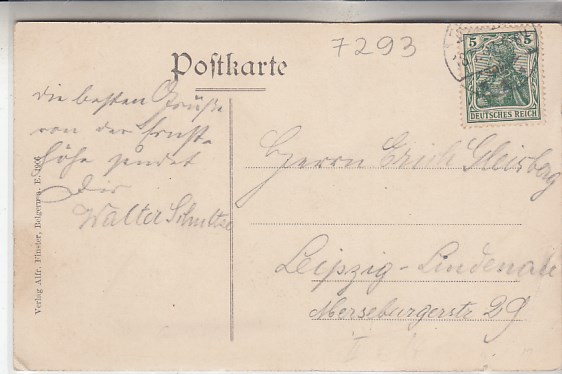 7293
5 5
DEUTSCHES REICH
Postkarte
die besten Grüße
von der
höhe sendet
Der
Walter Schultze
Herrn Erich Gleisberg
Leipzig-Lindenau
Merseburgerstr 29
II
Verlag Alfr. Finster, Belgern a. E. 1906